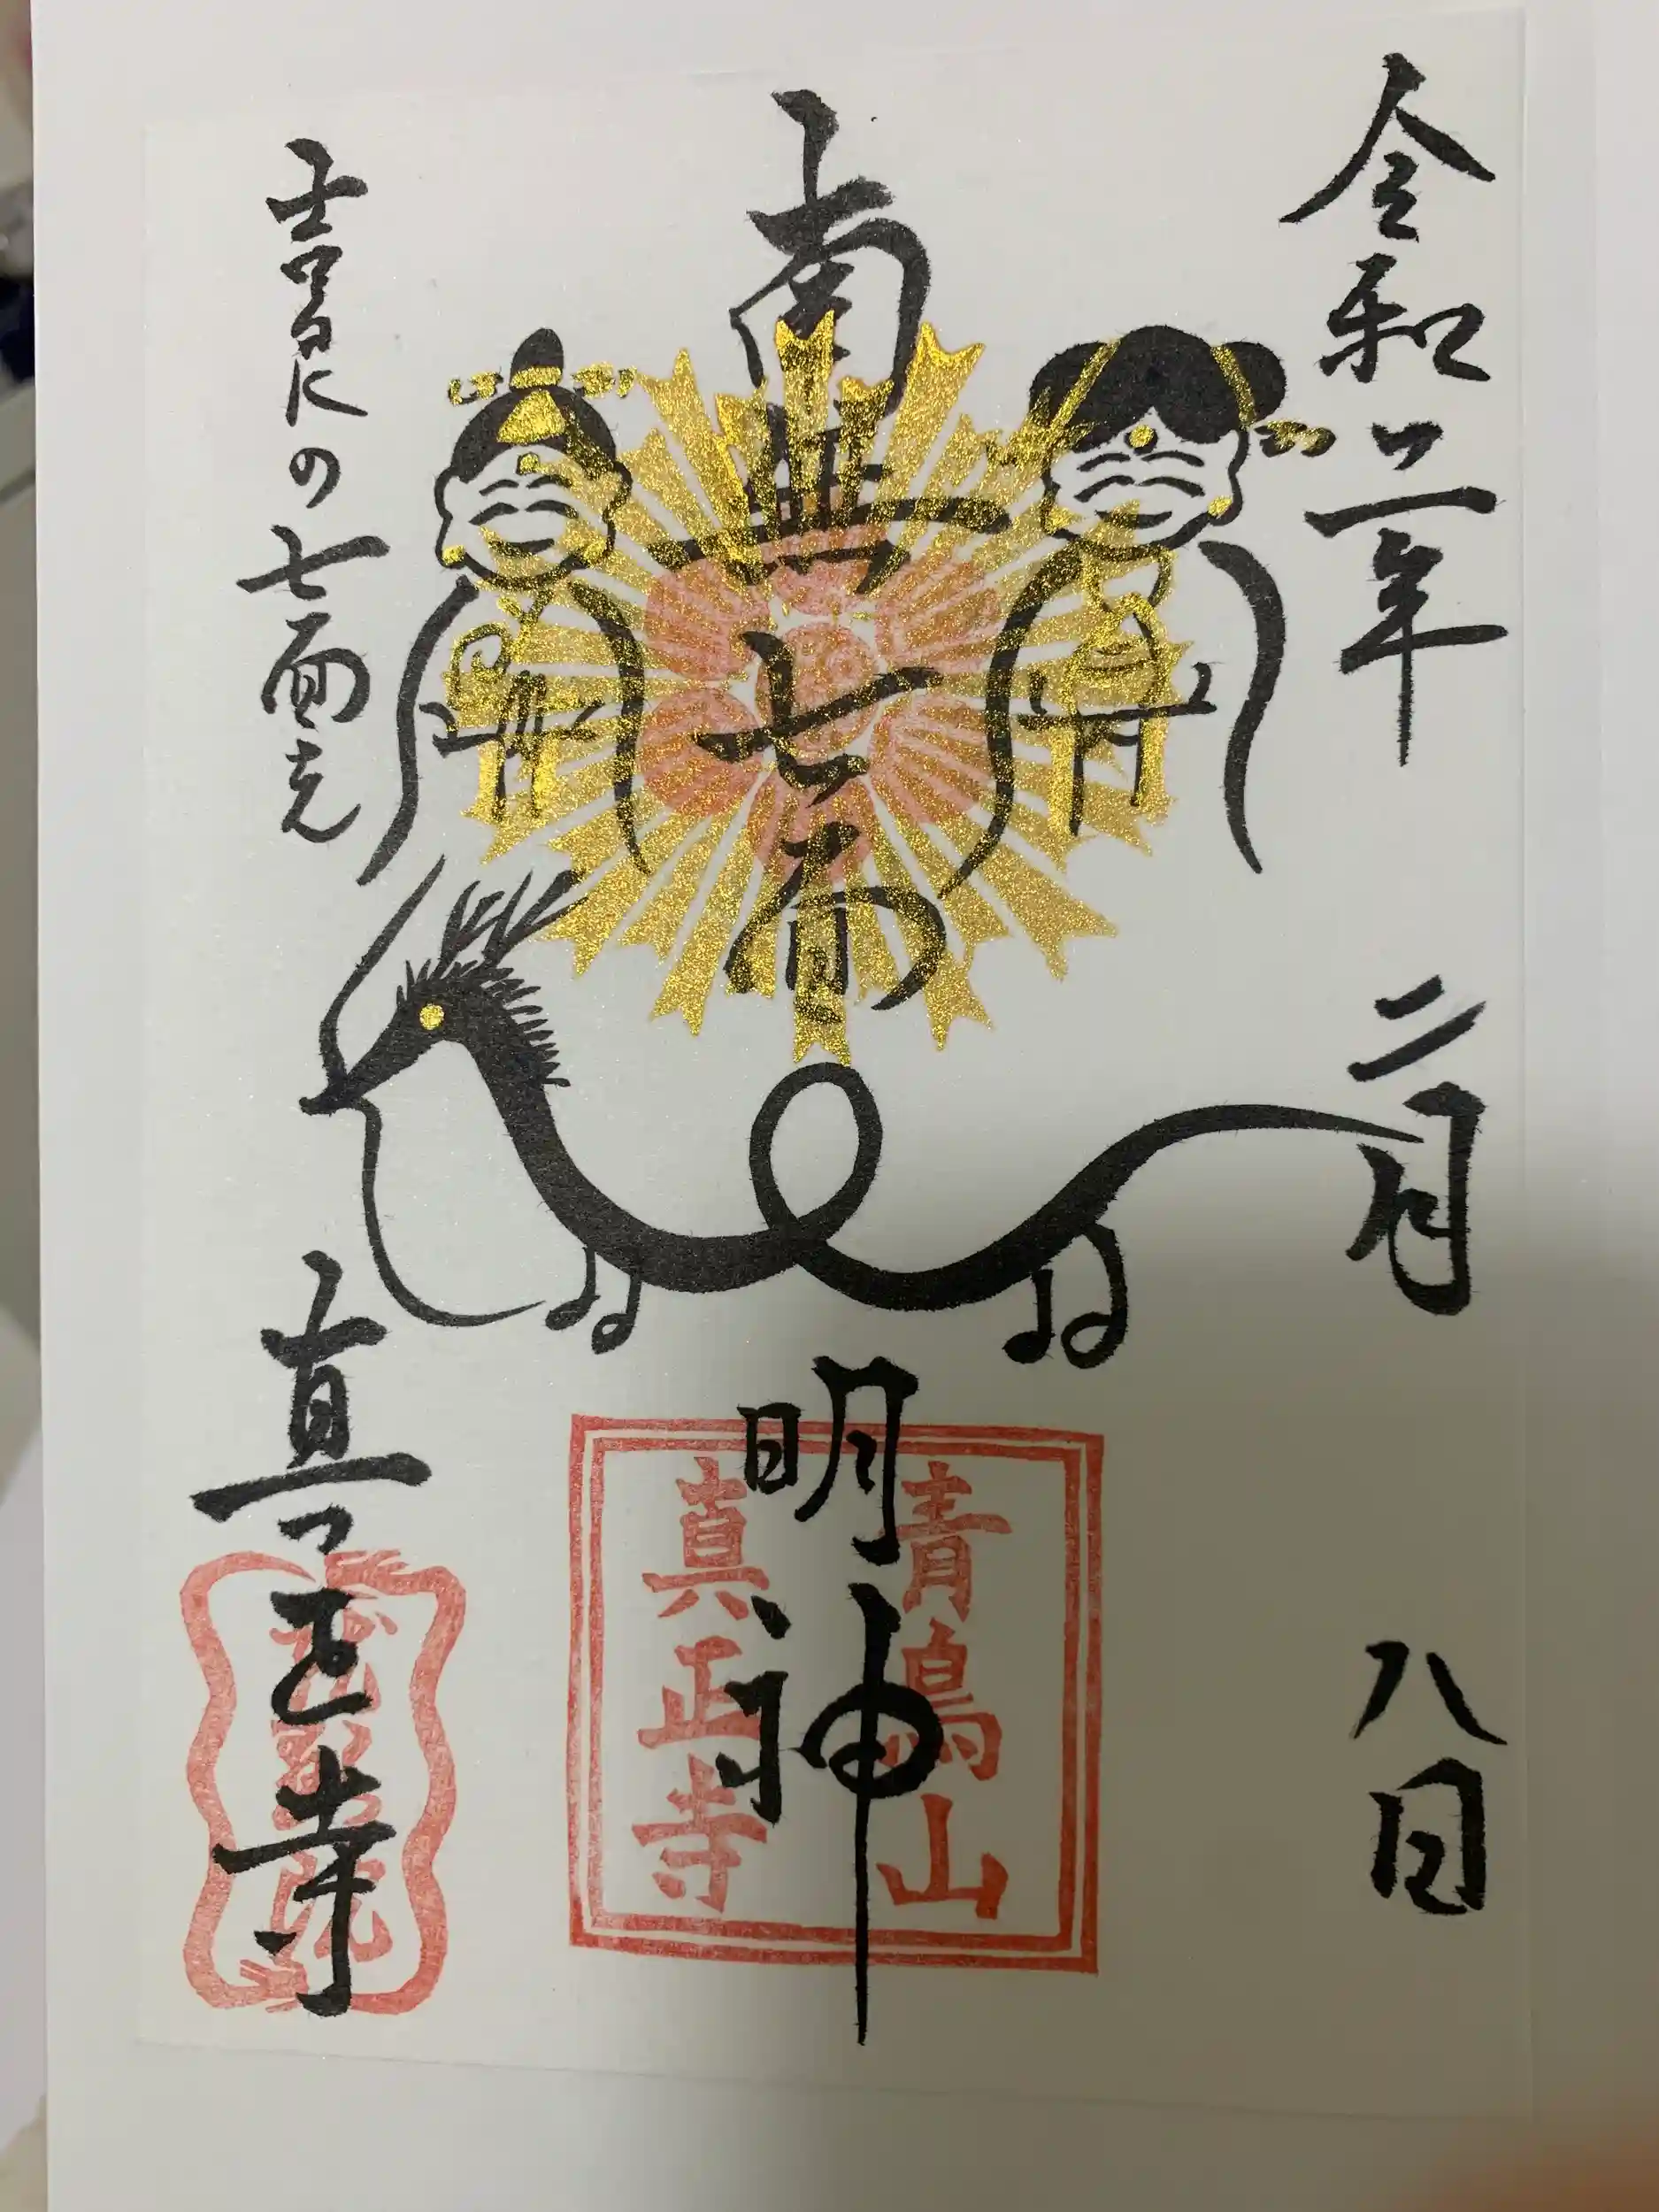 令和二年 二月 八日
南無七面 明神
青鳥山
真正寺
七面
真正寺